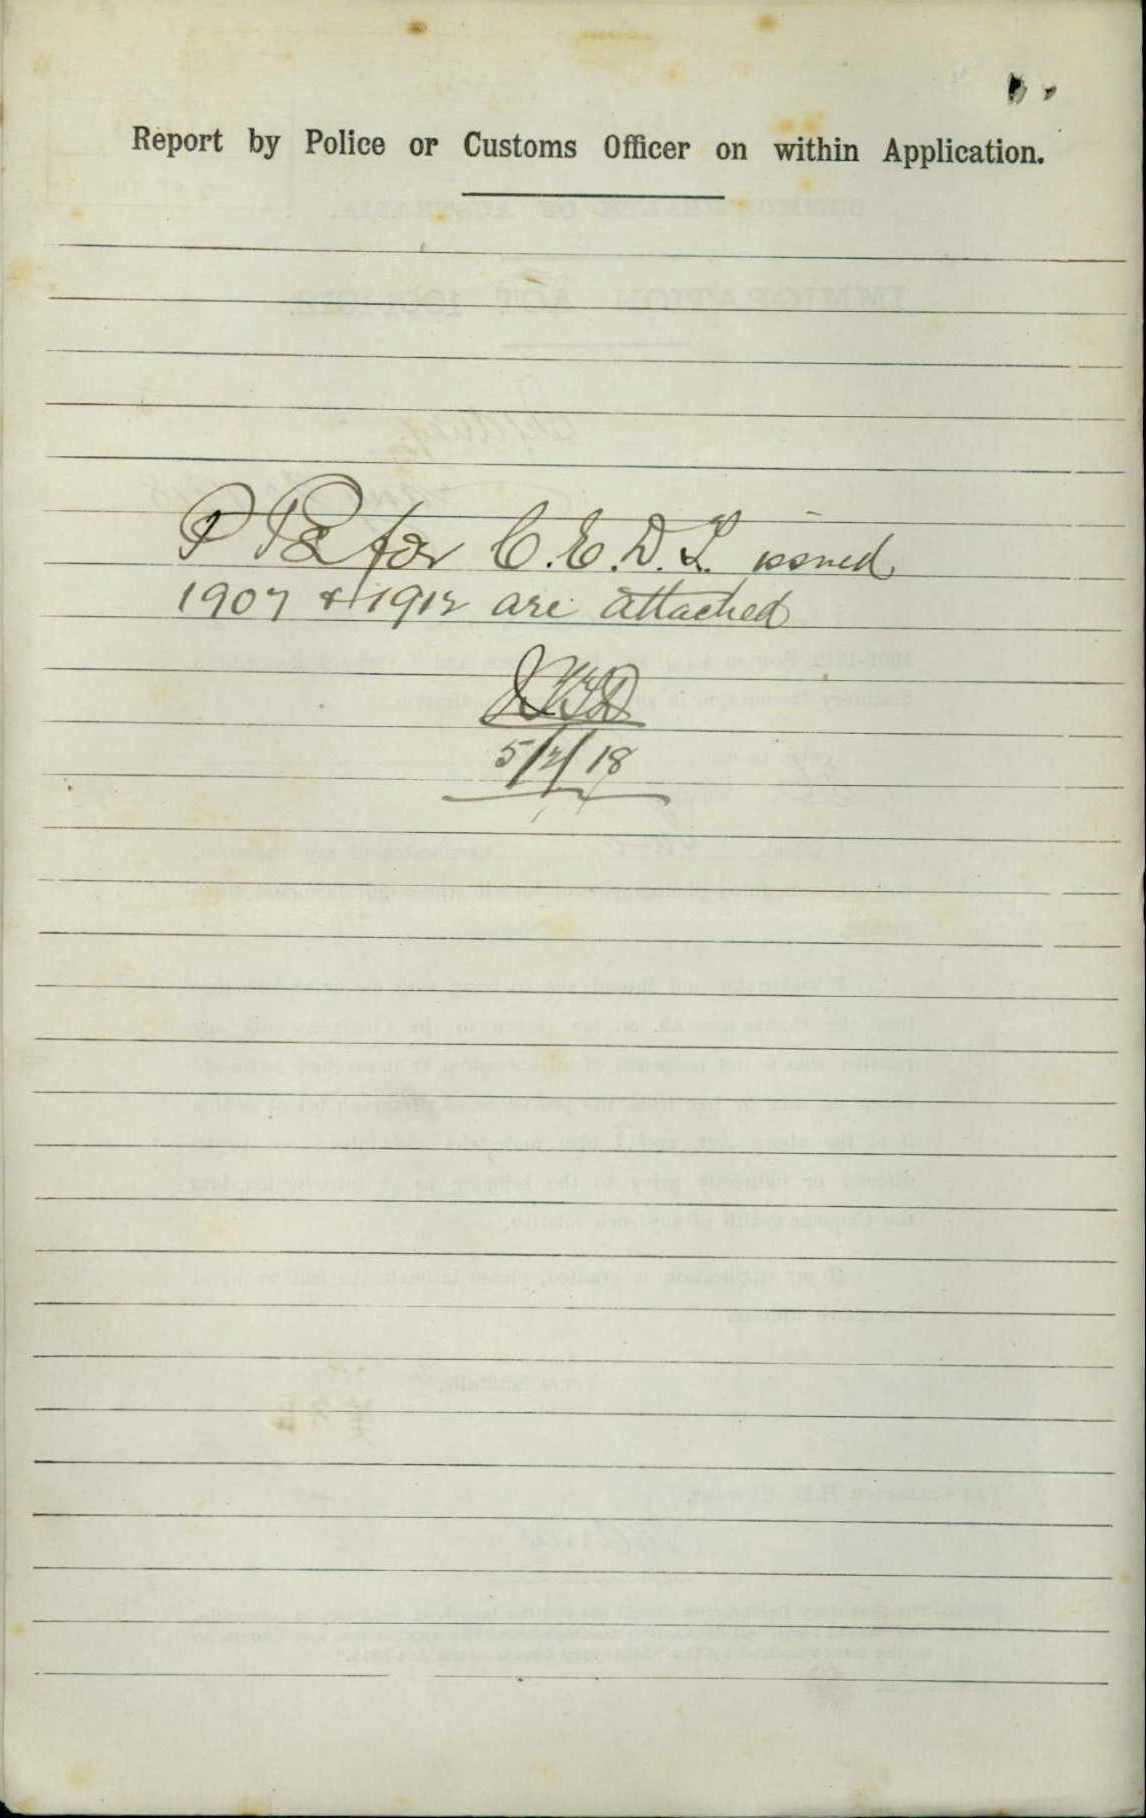 Report by Police or Customs Officer on within Application.
for C.E.D.T. issued
1907 & 1912 are attached
5/2/18